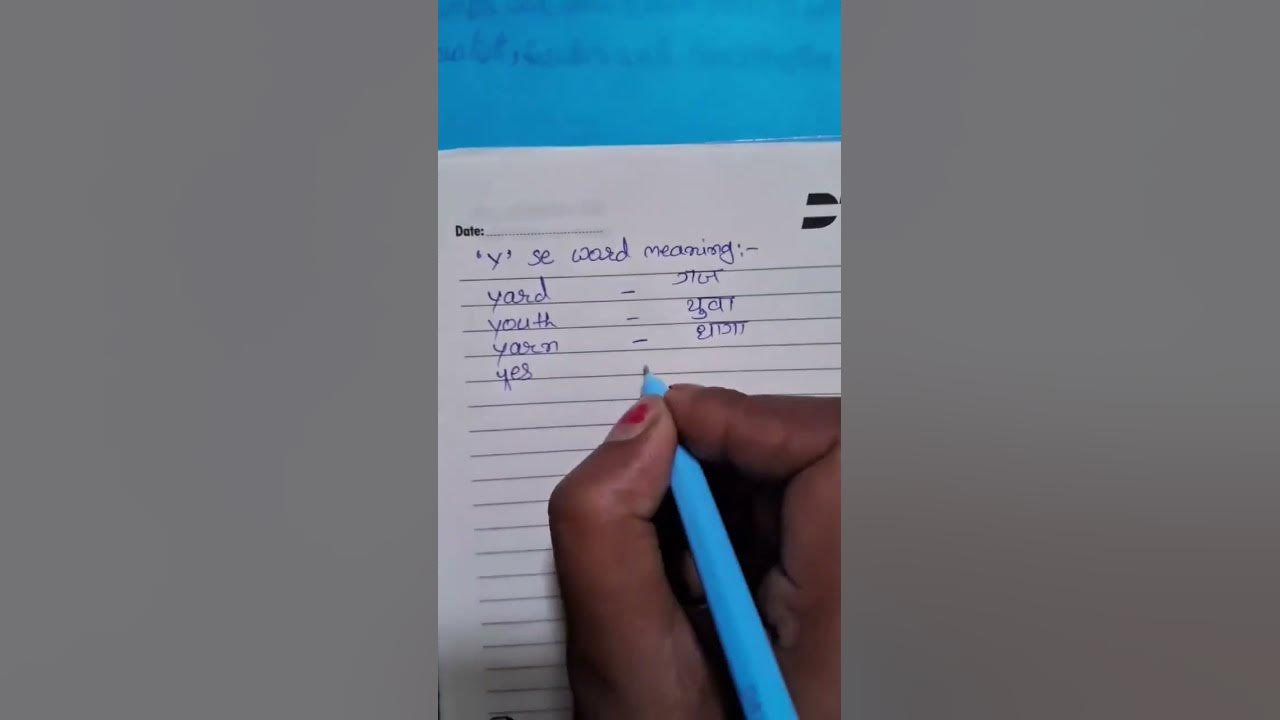 Date:
'Y' se word meaning:-
yard - गज
youth - युवा
yarn - धागा
yes